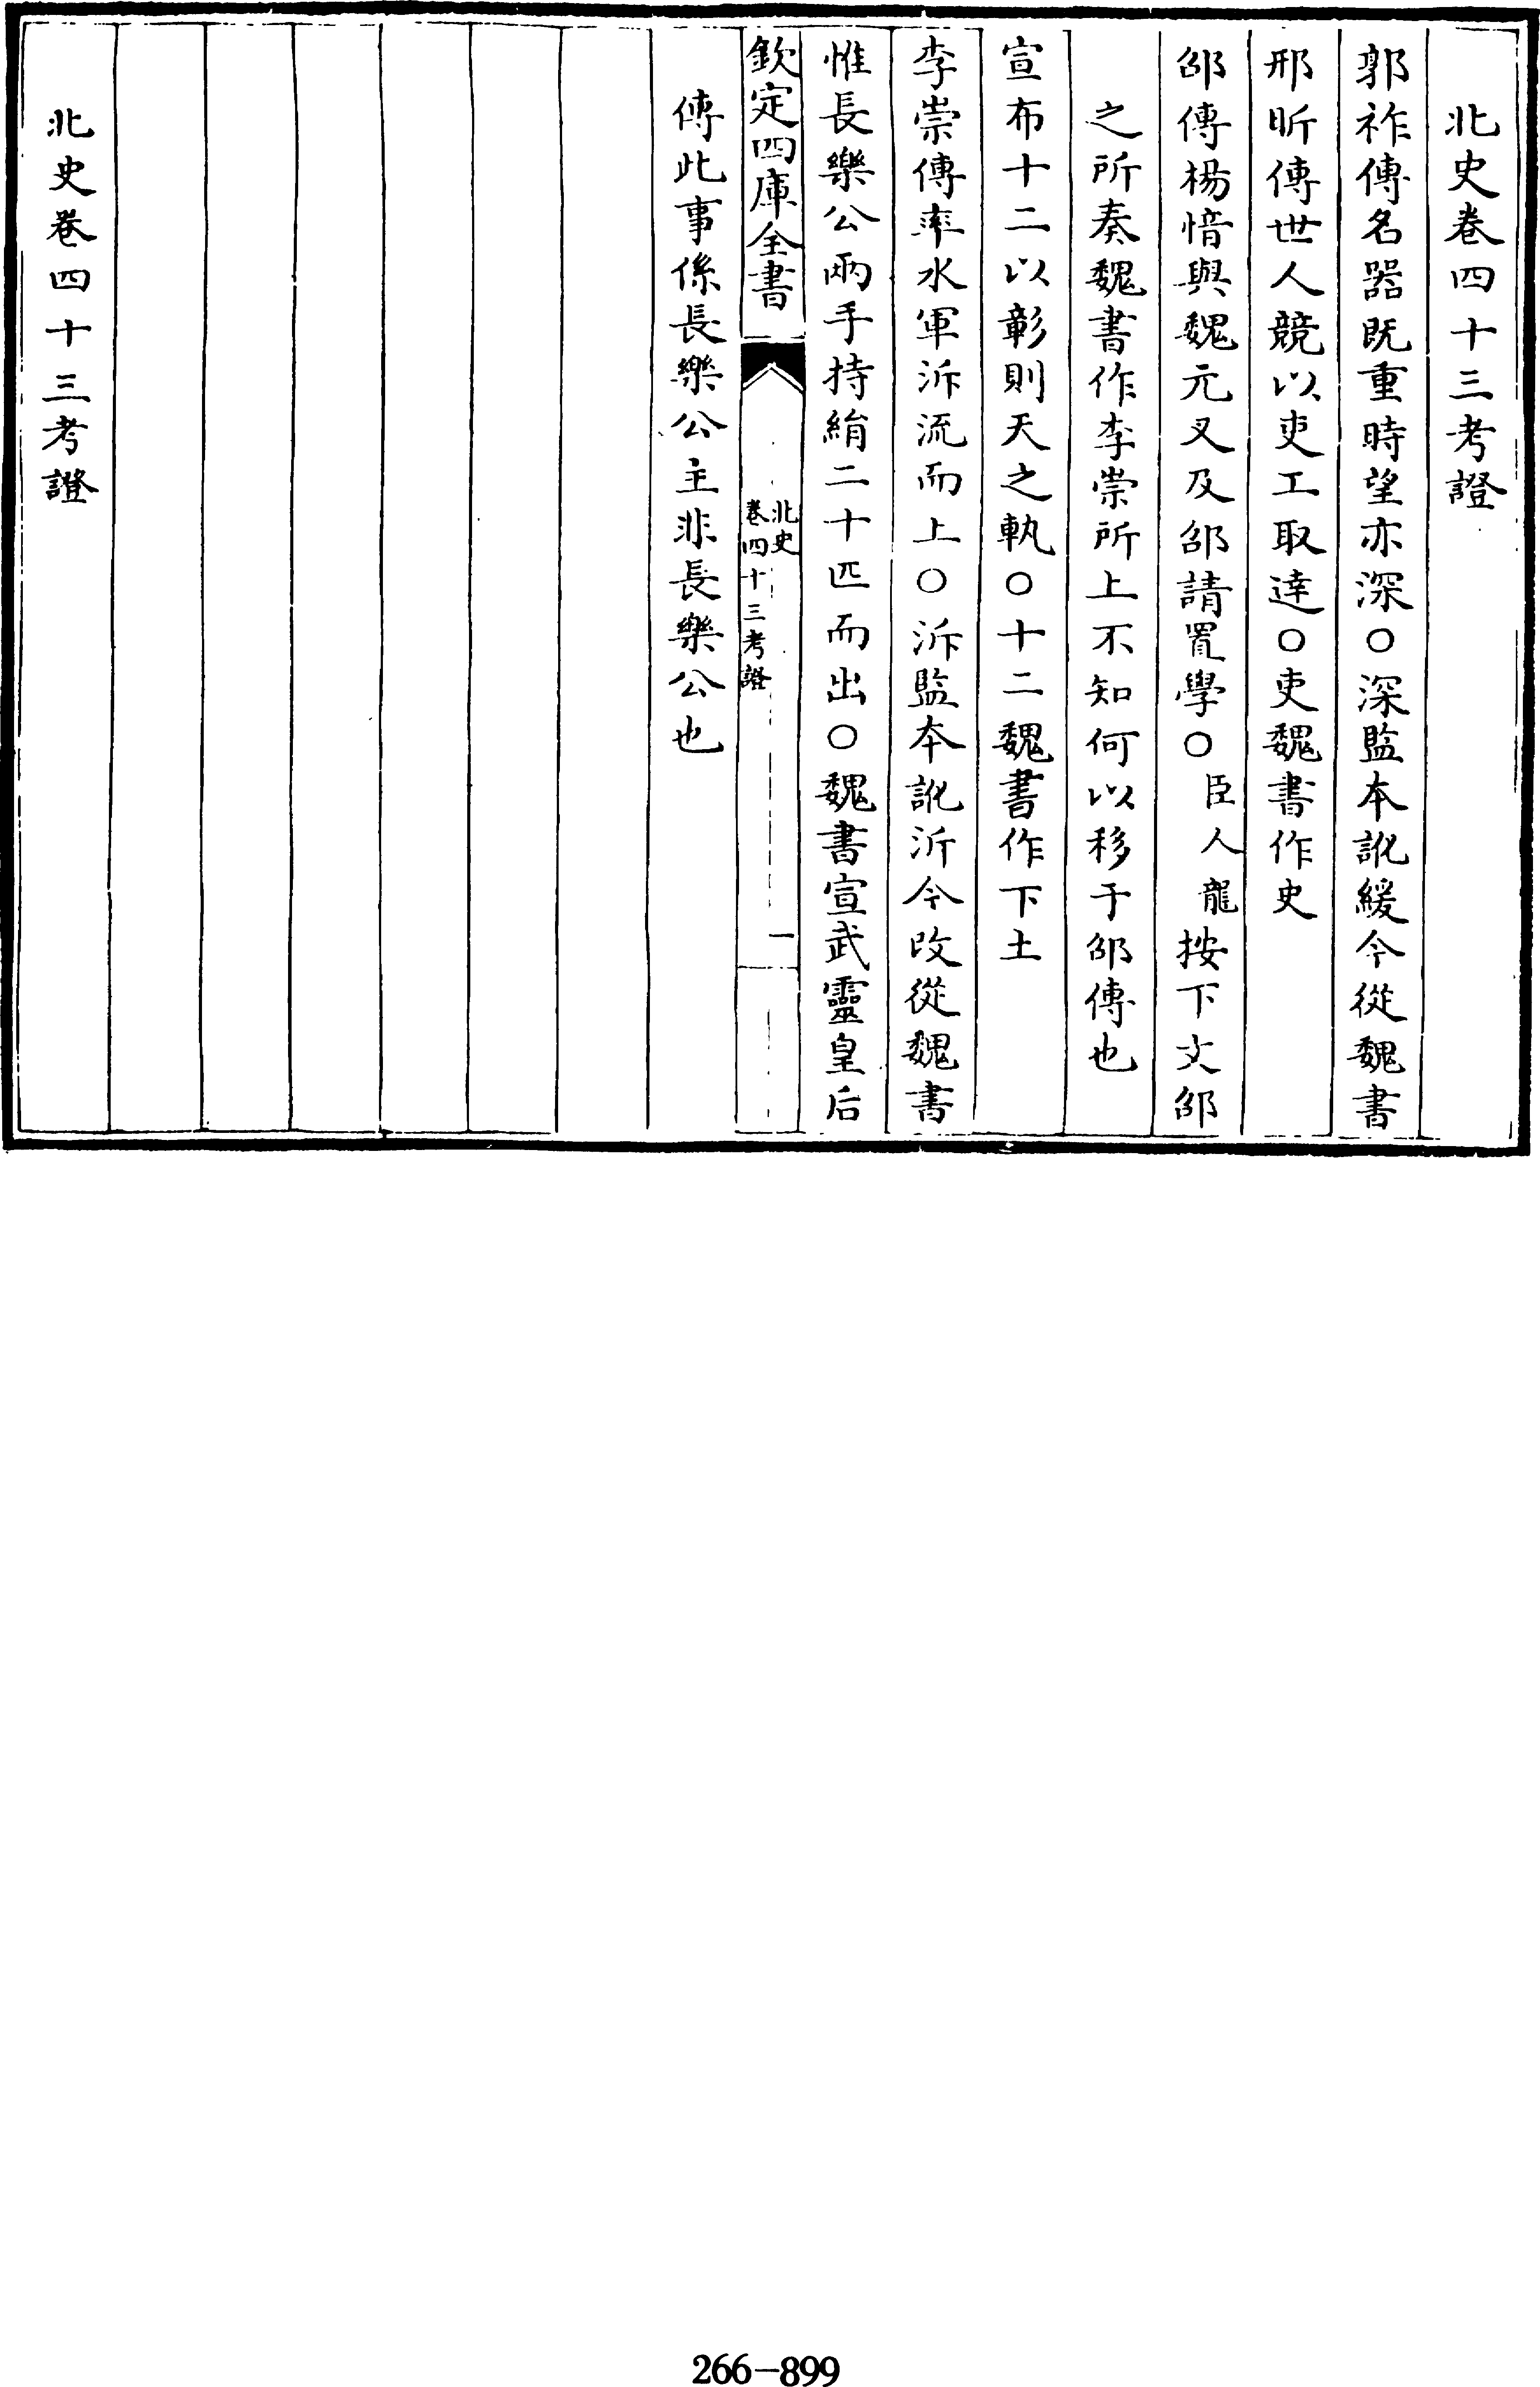 北史卷四十三考證
郭祚傳名器既重時望亦深○深監本訛緩今從魏書
邢昕傳世人競以吏工取達○吏魏書作史
邵傳楊愔與魏元叉及邵請置學○臣人龍按下文邵
之所奏魏書作李崇所上不知何以移于邵傳也
宣布十二以彰則天之軌○十二魏書作下土
李崇傳率水軍泝流而上○泝監本訛沂今改從魏書
惟長樂公兩手持絹二十匹而出○魏書宣武靈皇后
欽定四庫全書
北史
卷四十三考證
一
傳此事係長樂公主非長樂公也
北史卷四十三考證
266-899